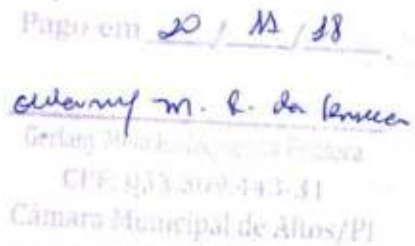 Pago em 20 / 11 / 18
m. R. da Fonseca
Gerlany
CPF: 933.509.443-31
Câmara Municipal de Altos/PI